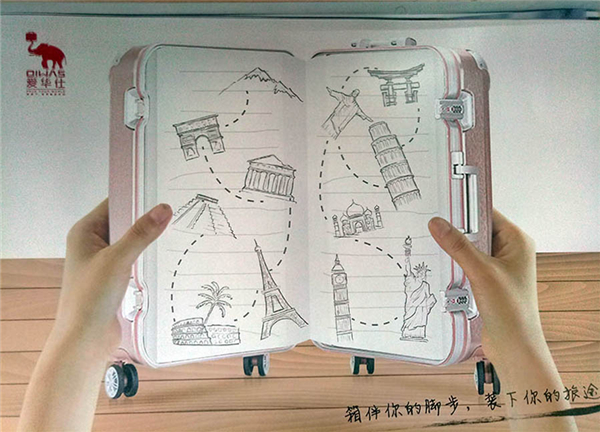 OIWAS
爱华仕
箱伴你的脚步，装下你的旅途